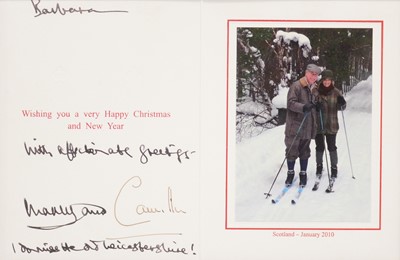 Barbara
Wishing you a very Happy Christmas
and New Year
With affectionate greetings -
Camilla
Leicestershire!
Scotland – January 2010